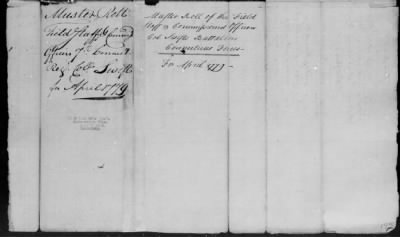 Muster Roll
Field Staff & Commd
Officers 7th Connect
Reg. Col. Swift
for April 1779
Muster Roll of the Field
Staff & Commissioned Officers
Col. Swifts Battalion
Connecticut Forces
For April 1779 -